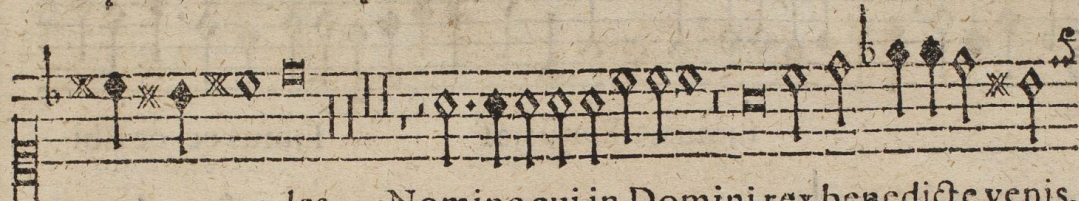 les Nomine qui in Domini rex benedicte venis.